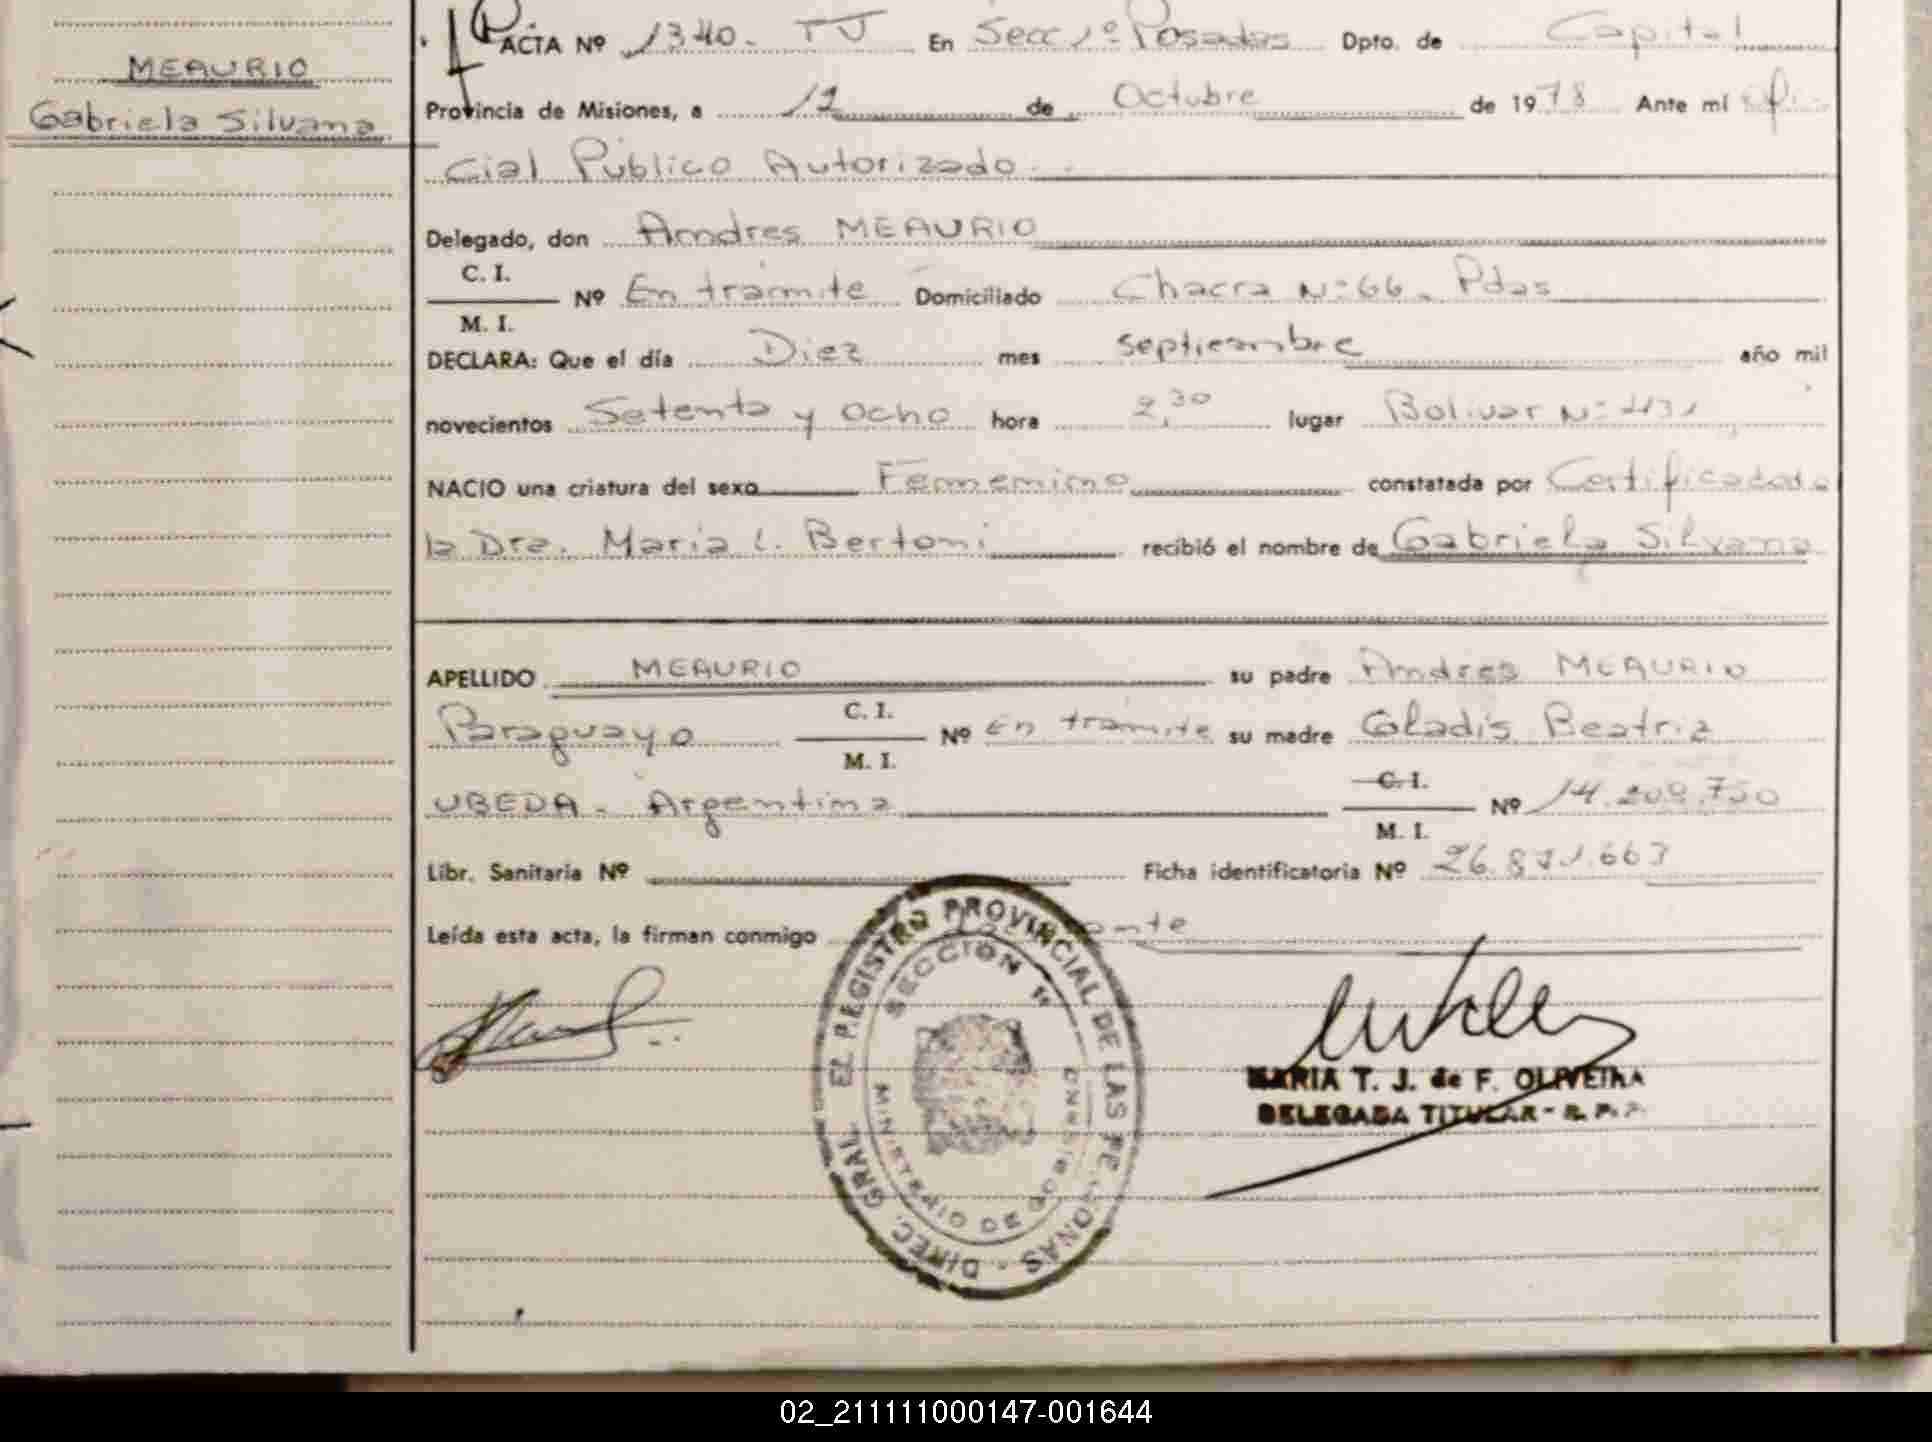 MEAURIO
Gabriela Silvana
ACTA Nº 1340. TJ En Secc 1º Posadas Dpto. de Capital
Provincia de Misiones, a 12 de Octubre de 1978 Ante mí Ofi-
cial Público Autorizado
Delegado, don Andres MEAURIO
C. I.
M. I. Nº En trámite Domiciliado Chacra Nº 66. Pdas
DECLARA: Que el día Diez mes septiembre año mil
novecientos Setenta y ocho hora 2,30 lugar Bolivar Nº
NACIO una criatura del sexo Femenino constatada por Certificado de
la Dra. Maria L. Bertoni recibió el nombre de Gabriela Silvana
APELLIDO MEAURIO su padre Andres MEAURIO
Paraguayo C. I.
M. I. Nº En trámite su madre Gladis Beatriz
UBEDA - Argentina C. I.
M. I. Nº 14.209.750
Libr. Sanitaria Nº Ficha identificatoria Nº 26.871.663
Leída esta acta, la firman conmigo
DIREC. GRAL. EL REGISTRO PROVINCIAL DE LAS PERSONAS
SECCION 1ª
MINISTERIO DE GOBIERNO
MARIA T. J. de F. OLIVEIRA
DELEGADA TITULAR - R. P. P.
02_211111000147-001644